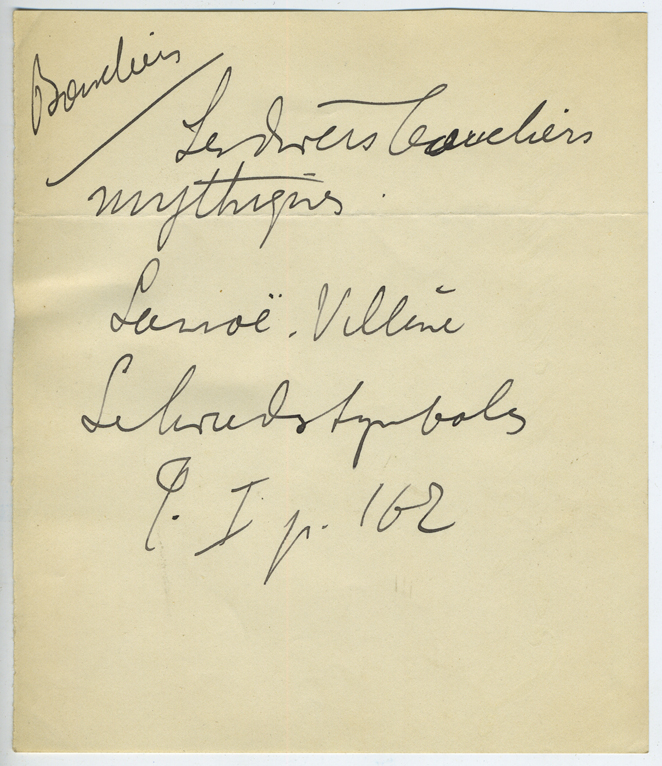 Boucliers
Les divers boucliers
mythiques.
Lanoë. Villène
Le livre des symboles
T. I p. 162